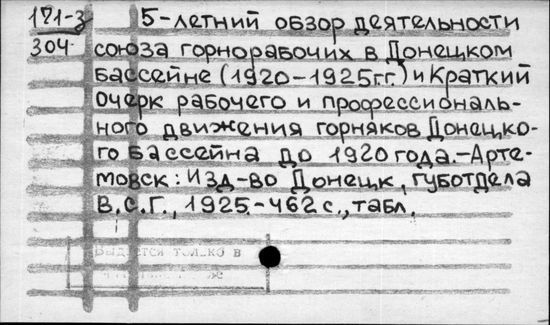 171-3
304
5-летний обзор деятельности
союза горнорабочих в Донецком
бассейне (1920-1925гг.) и Краткий
очерк рабочего и профессиональ-
ного движения горняков Донецко-
го бассейна до 1920 года.-Арте-
мовск: Изд-во Донецк, губотдела
В.С.Г., 1925.-462 с., табл.
Выдается только в